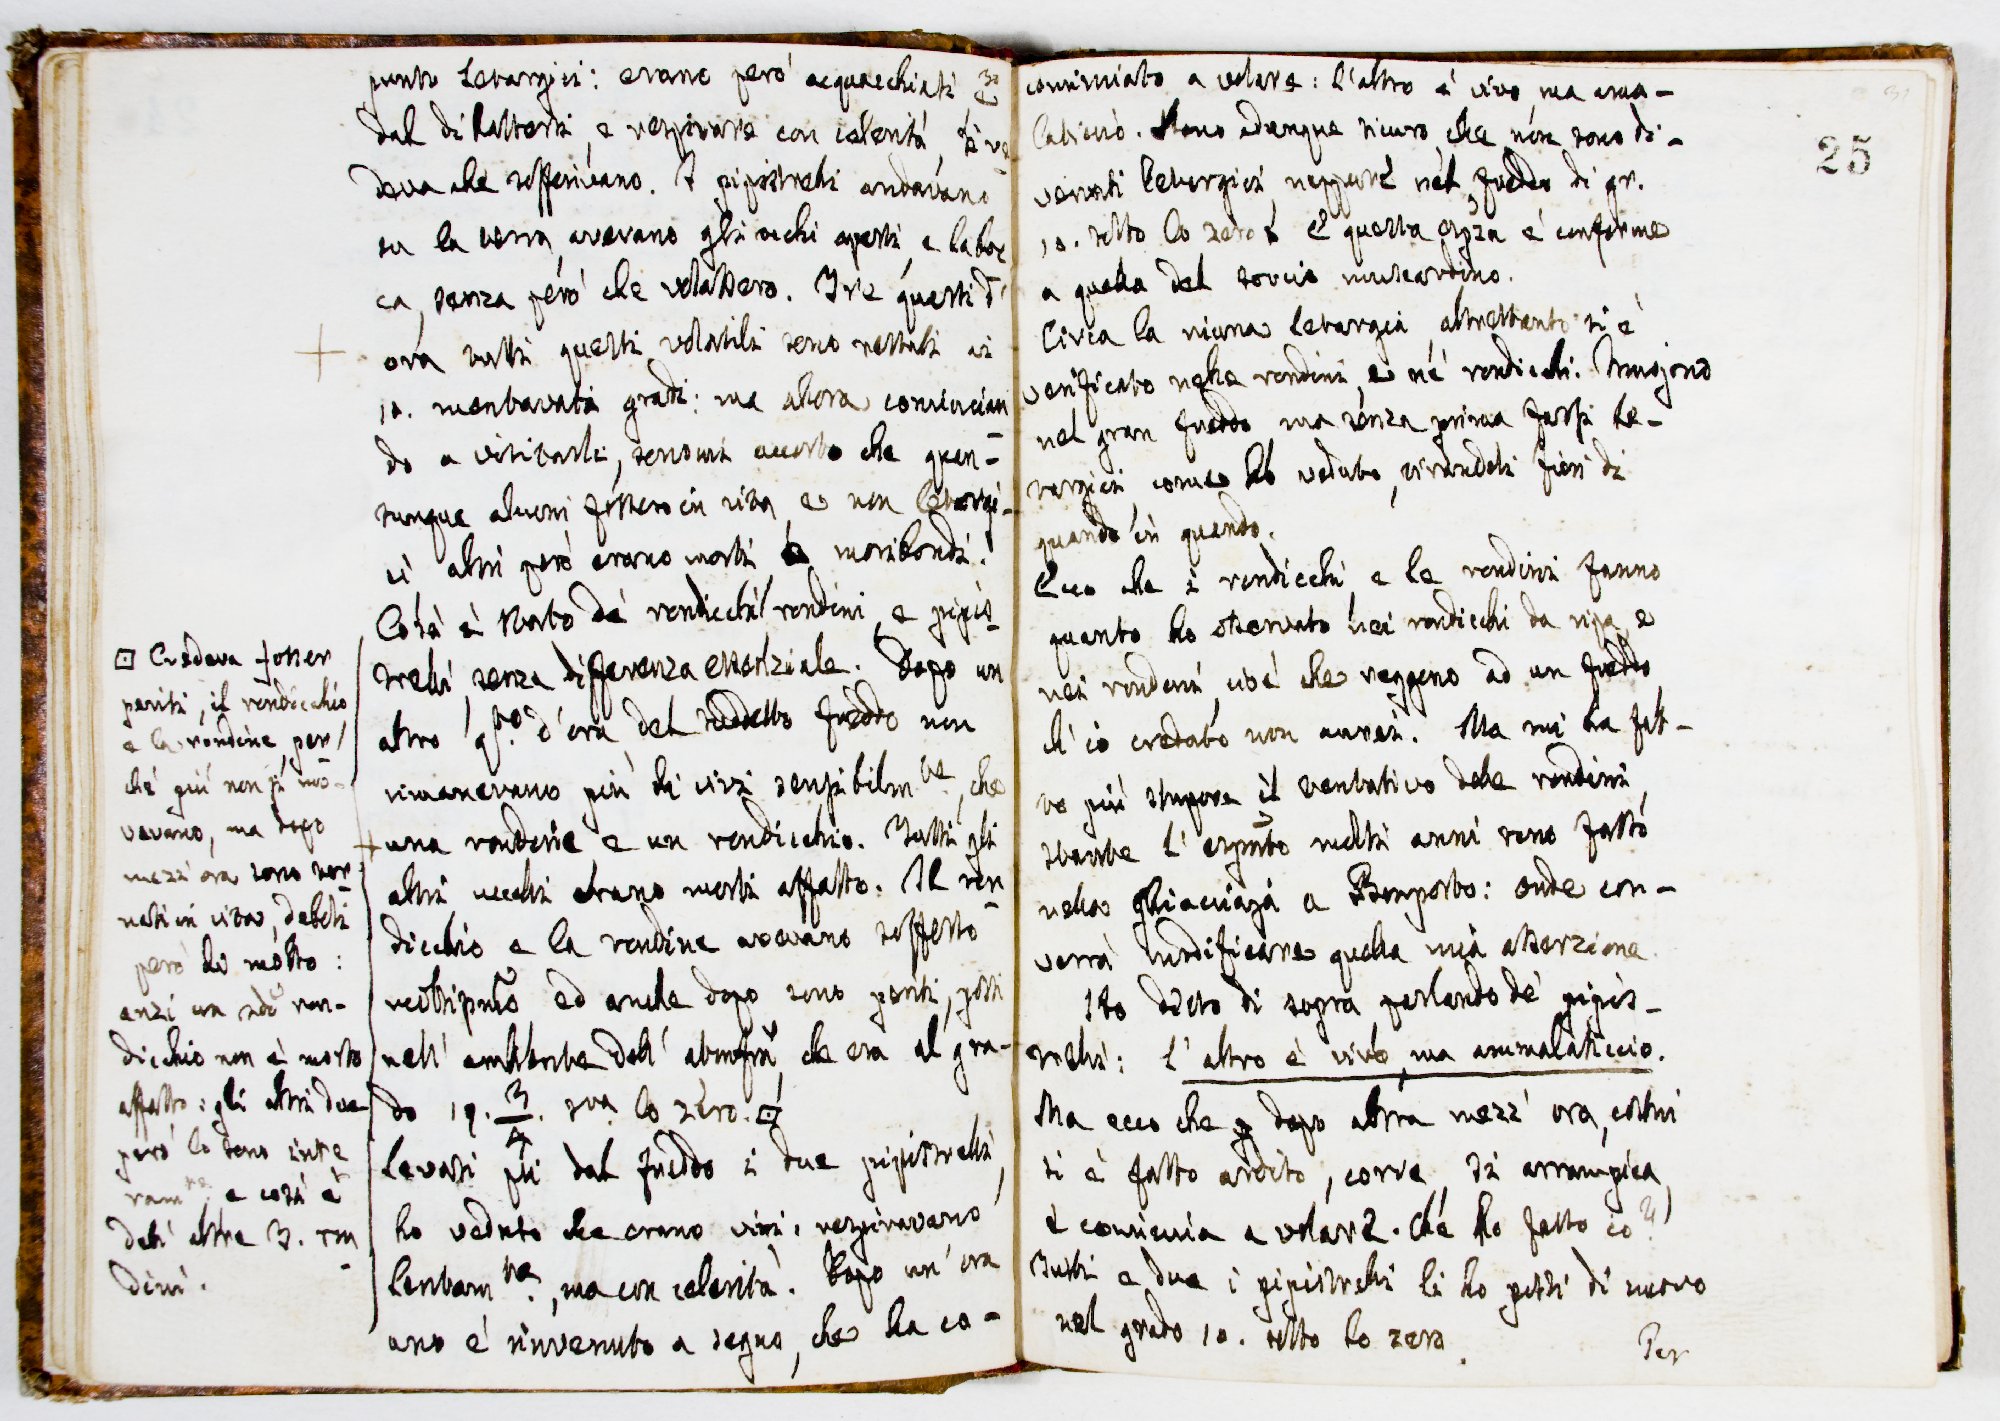 punto letargici: erano però acquacchiati e
dal dibattersi, e respirare con celerità, si ve
deva che soffrivano. I pipistrelli andavano
su la terra, avevano gli occhi aperti, e la boc
ca, senza però che volassero. Tre quarti d'
ora tutti questi volatili sono restati ai
10. mentovati gradi: ma allora comincian
do a visitarli, sonomi accorto che quan-
tunque alcuni fossero in vita, e non letargi-
ci altri però erano morti o moribondi.
Così è stato de' rondicchi, rondini, e pipis-
trelli, senza differenza essenziale. Dopo un
altro q.to d'ora del suddetto freddo non
rimanevano più di vivi sensibilm.te, che
una rondine e un rondicchio. Tutti gli
altri uccelli erano morti affatto. Il ron
dicchio e la rondine avevano sofferto
ed anche dopo sono periti, posti
nell' ambiente dell' atmosfra, che era al gra-
do 19. 3/4. sva lo zero. ⊡
Levati poi dal freddo i due pipistrelli,
ho veduto che erano vivi: respiravano
lentam.te, ma con celerità. Dopo un' ora
uno è rinvenuto a segno, che ha co-
⊡ Credeva fosser
periti, il rondicchio
e la rondine, per
ché più non si mo-
vevano, ma dopo
mezz'ora sono tor-
nati in vita, deboli
però di molto:
anzi un solo ron-
dicchio non è morto
affatto: gli altri due
però lo sono intie
ram.te, e così è
deli altre 3. ron
dini.
25
cominciato a volare: l'altro è vivo, ma ama-
laticcio. Sono adunque sicuro, che non sono di-
venuti letargici, neppure nel freddo di gr.
10. sotto lo zero. E questa espza è conforme
a quella del sorcio muscardino.
Circa la niuna letargia, altrettanto si è
verificato nelle rondini, e ne' rondicchi. Muojono
nel gran freddo, ma senza prima farsi le-
targici, come ho veduto, visitandoli
quando in quando.
Ecco che i rondicchi, e le rondini fanno
quanto ho osservato nei rondicchi da ripa, e
nei rondoni, cioè che reggono ad un freddo,
ch' io creduto non avrei. Ma mi ha fat-
to più stupore il tentativo dele rondini,
stante l' espmto molti anni sono fatto
nella ghiacciaja a Bomporto: onde con-
verrà modificare quella mia asserzione.
Ho detto di sopra parlando de' pipis-
trelli: l' altro è vivo, ma ammalaticcio.
Ma ecco che dopo altra mezz' ora, costui
si è fatto ardito, corre, si arrampica,
e comincia a volare. Che ho fatto io?
Tutti e due i pipistrelli li ho posti di nuovo
nel grado 10. sotto lo zero.
Per